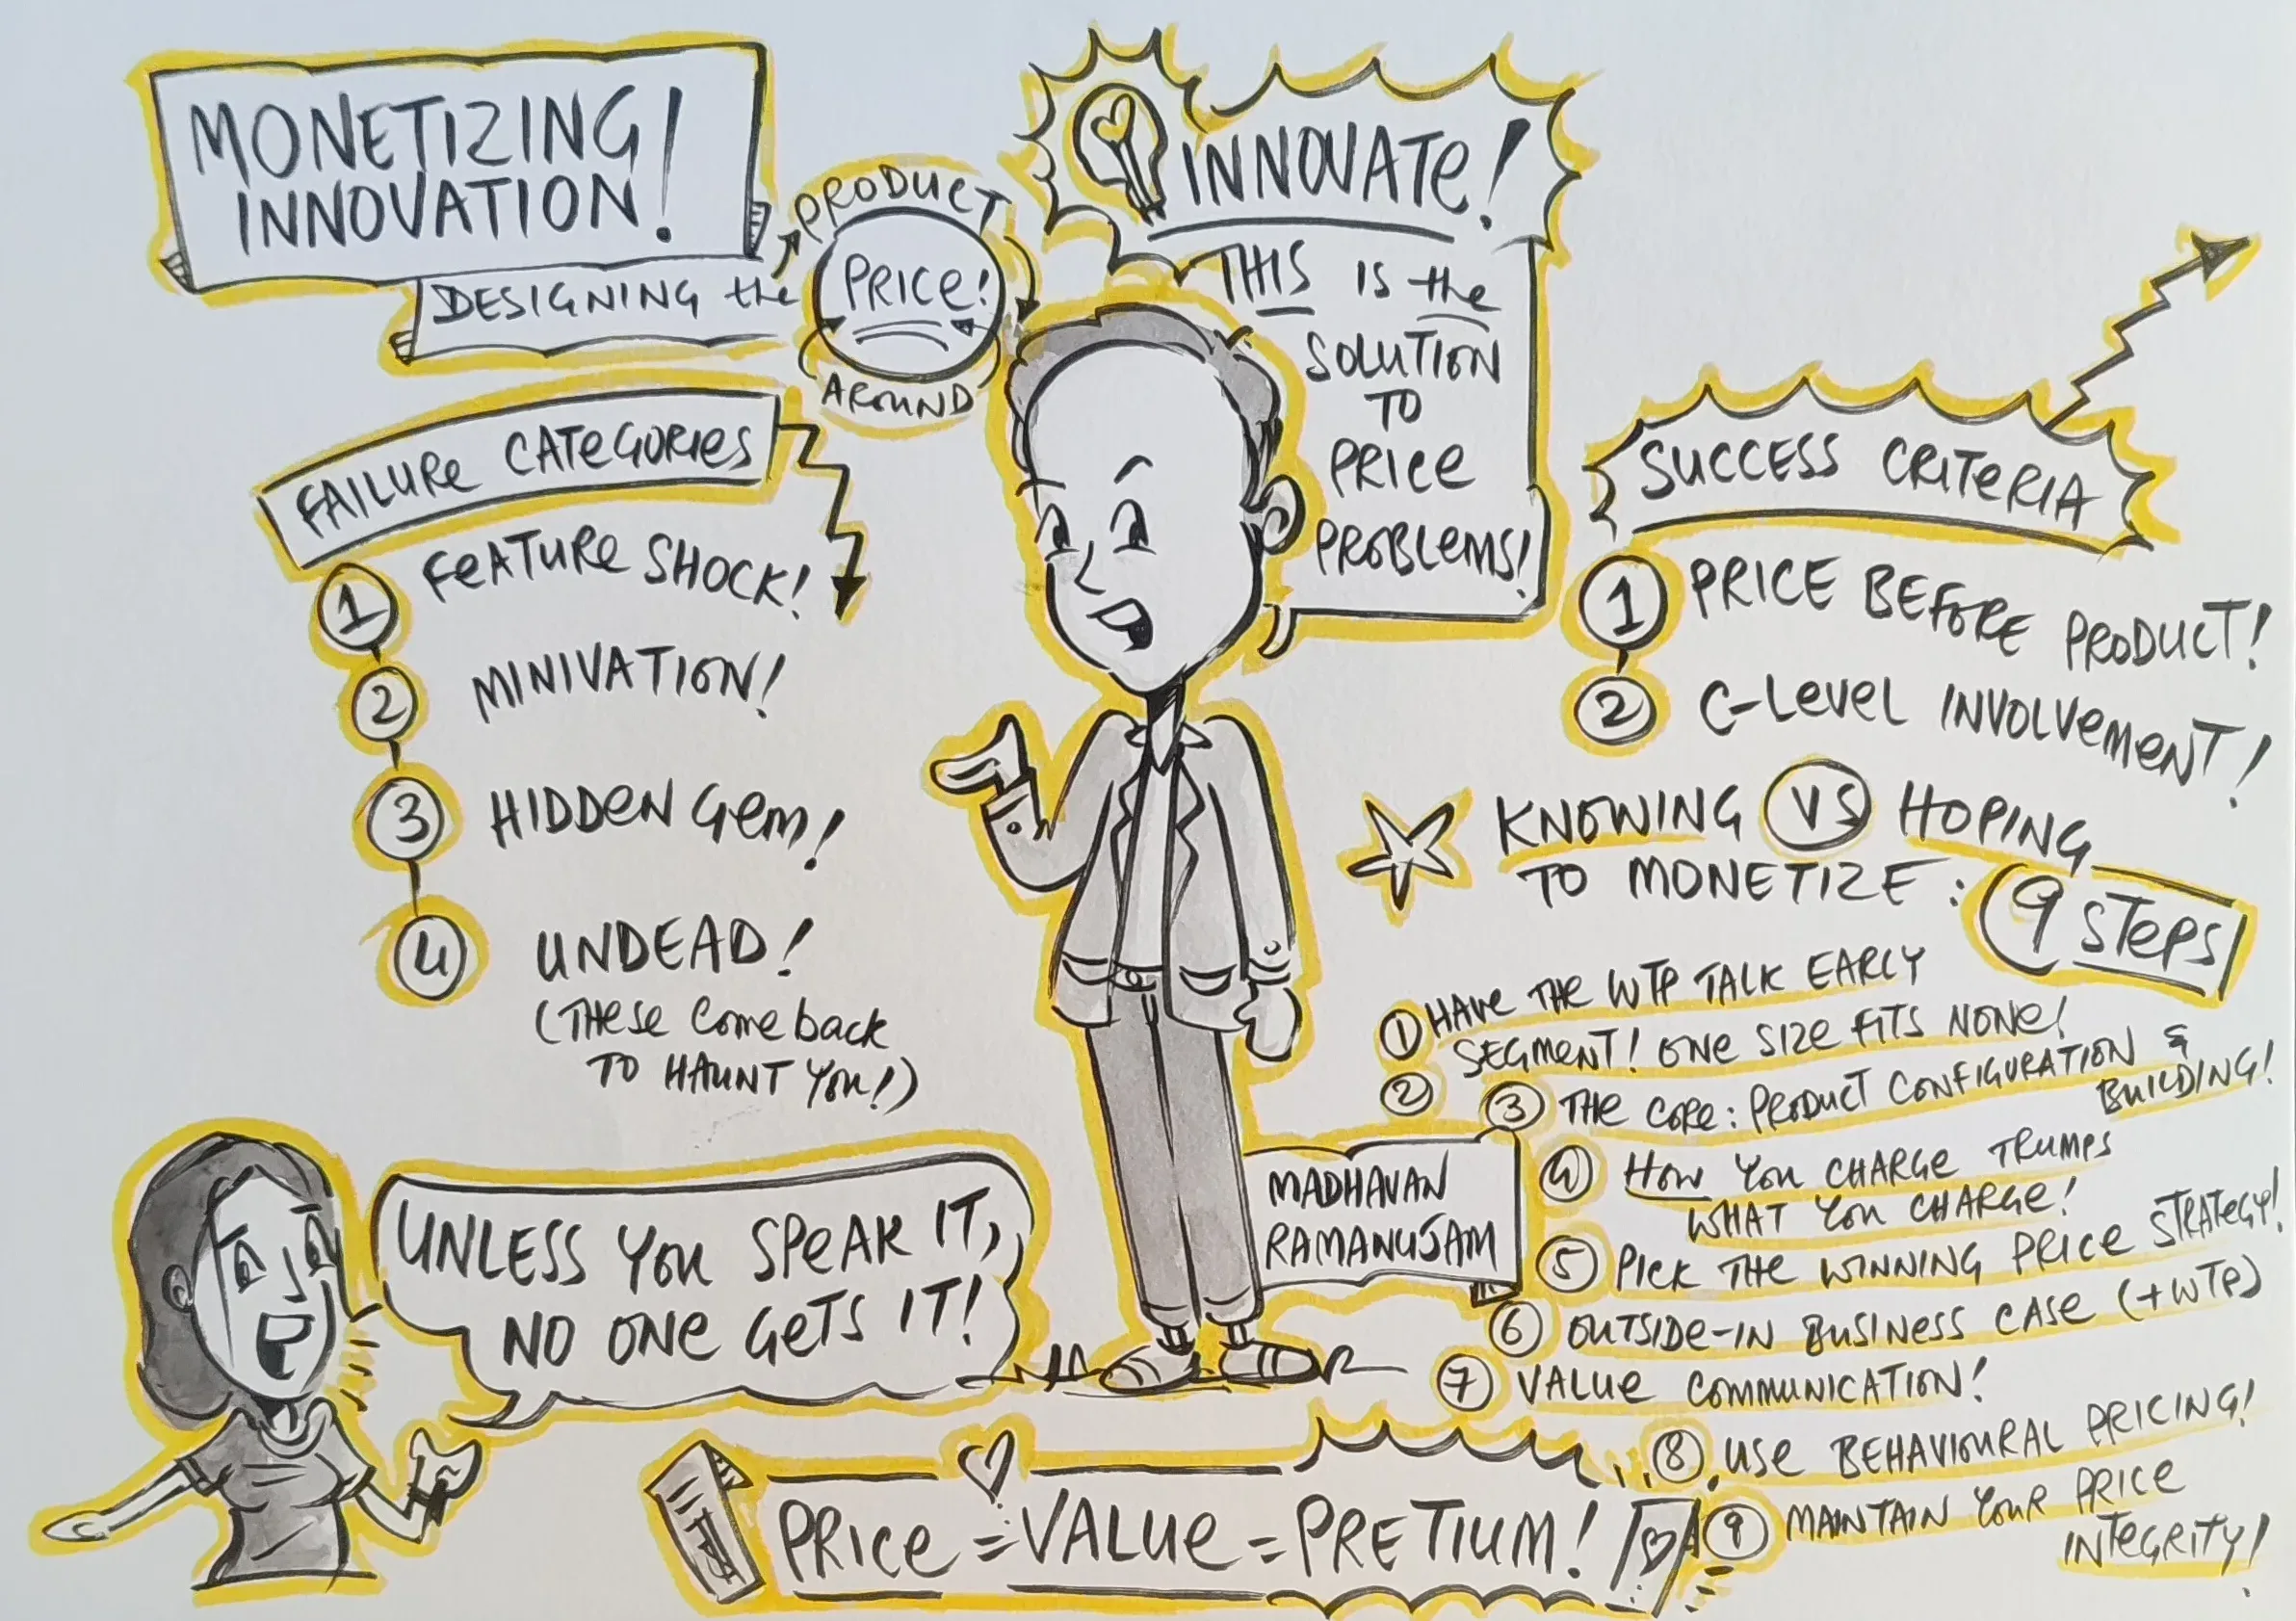 MONETIZING
INNOVATION!
DESIGNING the
PRODUCT
AROUND
PRICE!
INNOVATE!
THIS IS the
SOLUTION
TO
PRICE
PROBLEMS!
FAILURE CATEGORIES
1 FEATURE SHOCK!
2 MINIVATION!
3 HIDDEN GEM!
4 UNDEAD!
(THESE COME BACK
TO HAUNT YOU!)
UNLESS YOU SPEAK IT,
NO ONE GETS IT!
MADHAVAN
RAMANUJAM
SUCCESS CRITERIA
1 PRICE BEFORE PRODUCT!
2 C-LEVEL INVOLVEMENT!
KNOWING VS HOPING
TO MONETIZE: 9 STEPS
1 HAVE THE WTP TALK EARLY
2 SEGMENT! ONE SIZE FITS NONE!
3 THE CORE: PRODUCT CONFIGURATION &
BUILDING!
4 HOW YOU CHARGE TRUMPS
WHAT YOU CHARGE!
5 PICK THE WINNING PRICE STRATEGY!
6 OUTSIDE-IN BUSINESS CASE (+WTP)
7 VALUE COMMUNICATION!
8 USE BEHAVIOURAL PRICING!
9 MAINTAIN YOUR PRICE
INTEGRITY!
PRICE = VALUE = PRETIUM!